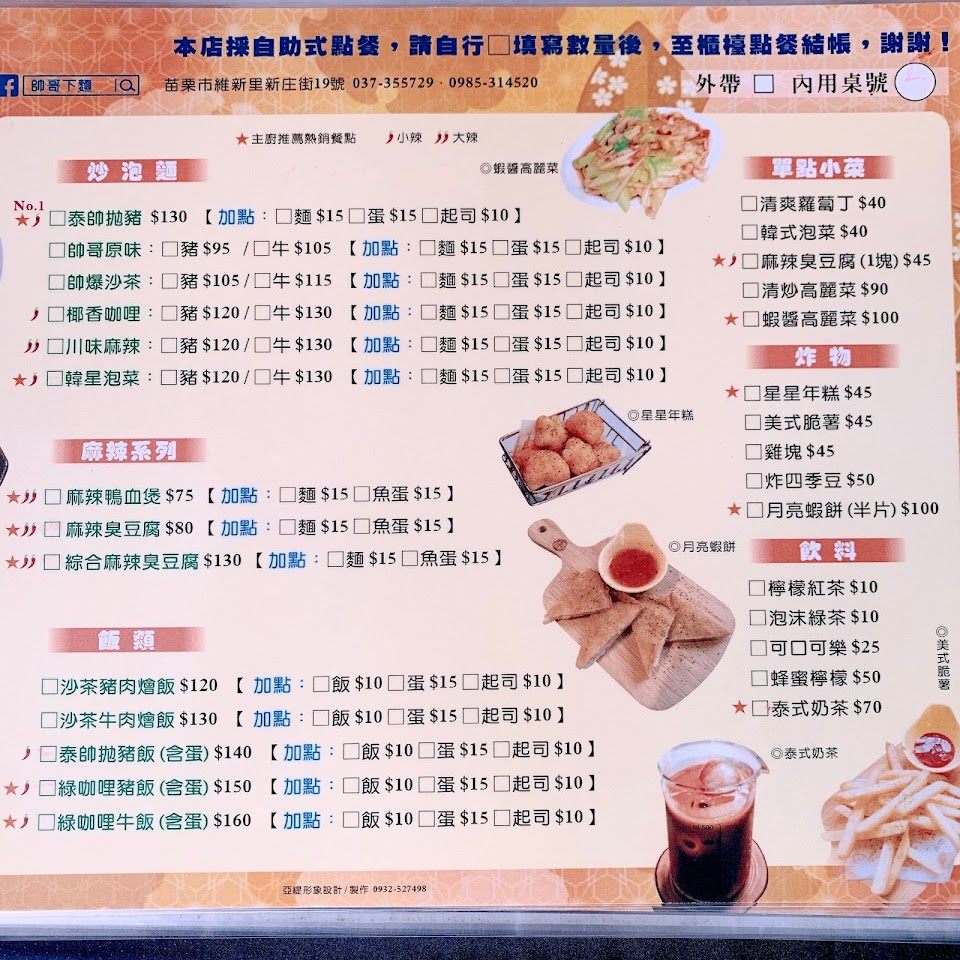 本店採自助式點餐，請自行□填寫數量後，至櫃檯點餐結帳，謝謝！
帥哥下麵 苗栗市維新里新庄街19號 037-355729、0985-314520
外帶 □ 內用桌號
★主廚推薦熱銷餐點 小辣 大辣
炒泡麵
No.1
★□泰帥拋豬 $130 【加點：□麵 $15 □蛋 $15 □起司 $10】
□帥哥原味：□豬 $95 /□牛 $105 【加點：□麵 $15 □蛋 $15 □起司 $10】
□帥爆沙茶：□豬 $105 /□牛 $115 【加點：□麵 $15 □蛋 $15 □起司 $10】
□椰香咖哩：□豬 $120 /□牛 $130 【加點：□麵 $15 □蛋 $15 □起司 $10】
□川味麻辣：□豬 $120 /□牛 $130 【加點：□麵 $15 □蛋 $15 □起司 $10】
★□韓星泡菜：□豬 $120 /□牛 $130 【加點：□麵 $15 □蛋 $15 □起司 $10】
麻辣系列
★□麻辣鴨血煲 $75 【加點：□麵 $15 □魚蛋 $15】
★□麻辣臭豆腐 $80 【加點：□麵 $15 □魚蛋 $15】
★□綜合麻辣臭豆腐 $130 【加點：□麵 $15 □魚蛋 $15】
飯類
□沙茶豬肉燴飯 $120 【加點：□飯 $10 □蛋 $15 □起司 $10】
□沙茶牛肉燴飯 $130 【加點：□飯 $10 □蛋 $15 □起司 $10】
□泰帥拋豬飯(含蛋) $140 【加點：□飯 $10 □蛋 $15 □起司 $10】
★□綠咖哩豬飯(含蛋) $150 【加點：□飯 $10 □蛋 $15 □起司 $10】
★□綠咖哩牛飯(含蛋) $160 【加點：□飯 $10 □蛋 $15 □起司 $10】
◎蝦醬高麗菜
◎星星年糕
◎月亮蝦餅
◎泰式奶茶
◎美式脆薯
單點小菜
□清爽蘿蔔丁 $40
□韓式泡菜 $40
★□麻辣臭豆腐(1塊) $45
□清炒高麗菜 $90
★□蝦醬高麗菜 $100
炸物
★□星星年糕 $45
□美式脆薯 $45
□雞塊 $45
□炸四季豆 $50
★□月亮蝦餅(半片) $100
飲料
□檸檬紅茶 $10
□泡沫綠茶 $10
□可口可樂 $25
□蜂蜜檸檬 $50
★□泰式奶茶 $70
500
亞緹形象設計/製作 0932-527498